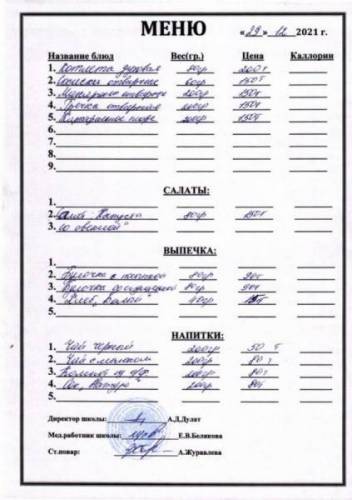 МЕНЮ «29» 12 2021 г.
Название блюд Вес(гр.) Цена Каллории
1. Котлета 80гр 200т
2. Сосиски отварные 60гр 150т
3. Макароны отварные 200гр 150т
4. Гречка отварная 150т
5. Картофельное пюре 200гр 150т
6.
7.
8.
9.
САЛАТЫ:
1.
2. Капуста 80гр 150т
3.
ВЫПЕЧКА:
1.
2. Булочка с 80гр 90т
3. Булочка 80гр 90т
4. Хлеб 40гр
5.
НАПИТКИ:
1. Чай черный 200гр 50т
2. Чай с молоком 200гр 80т
3. Компот 200гр 80т
4. Сок 200гр 80т
5.
Директор школы: А.Д.Дулат
Мед.работник школы: Е.В.Белякова
Ст.повар: А.Журавлева